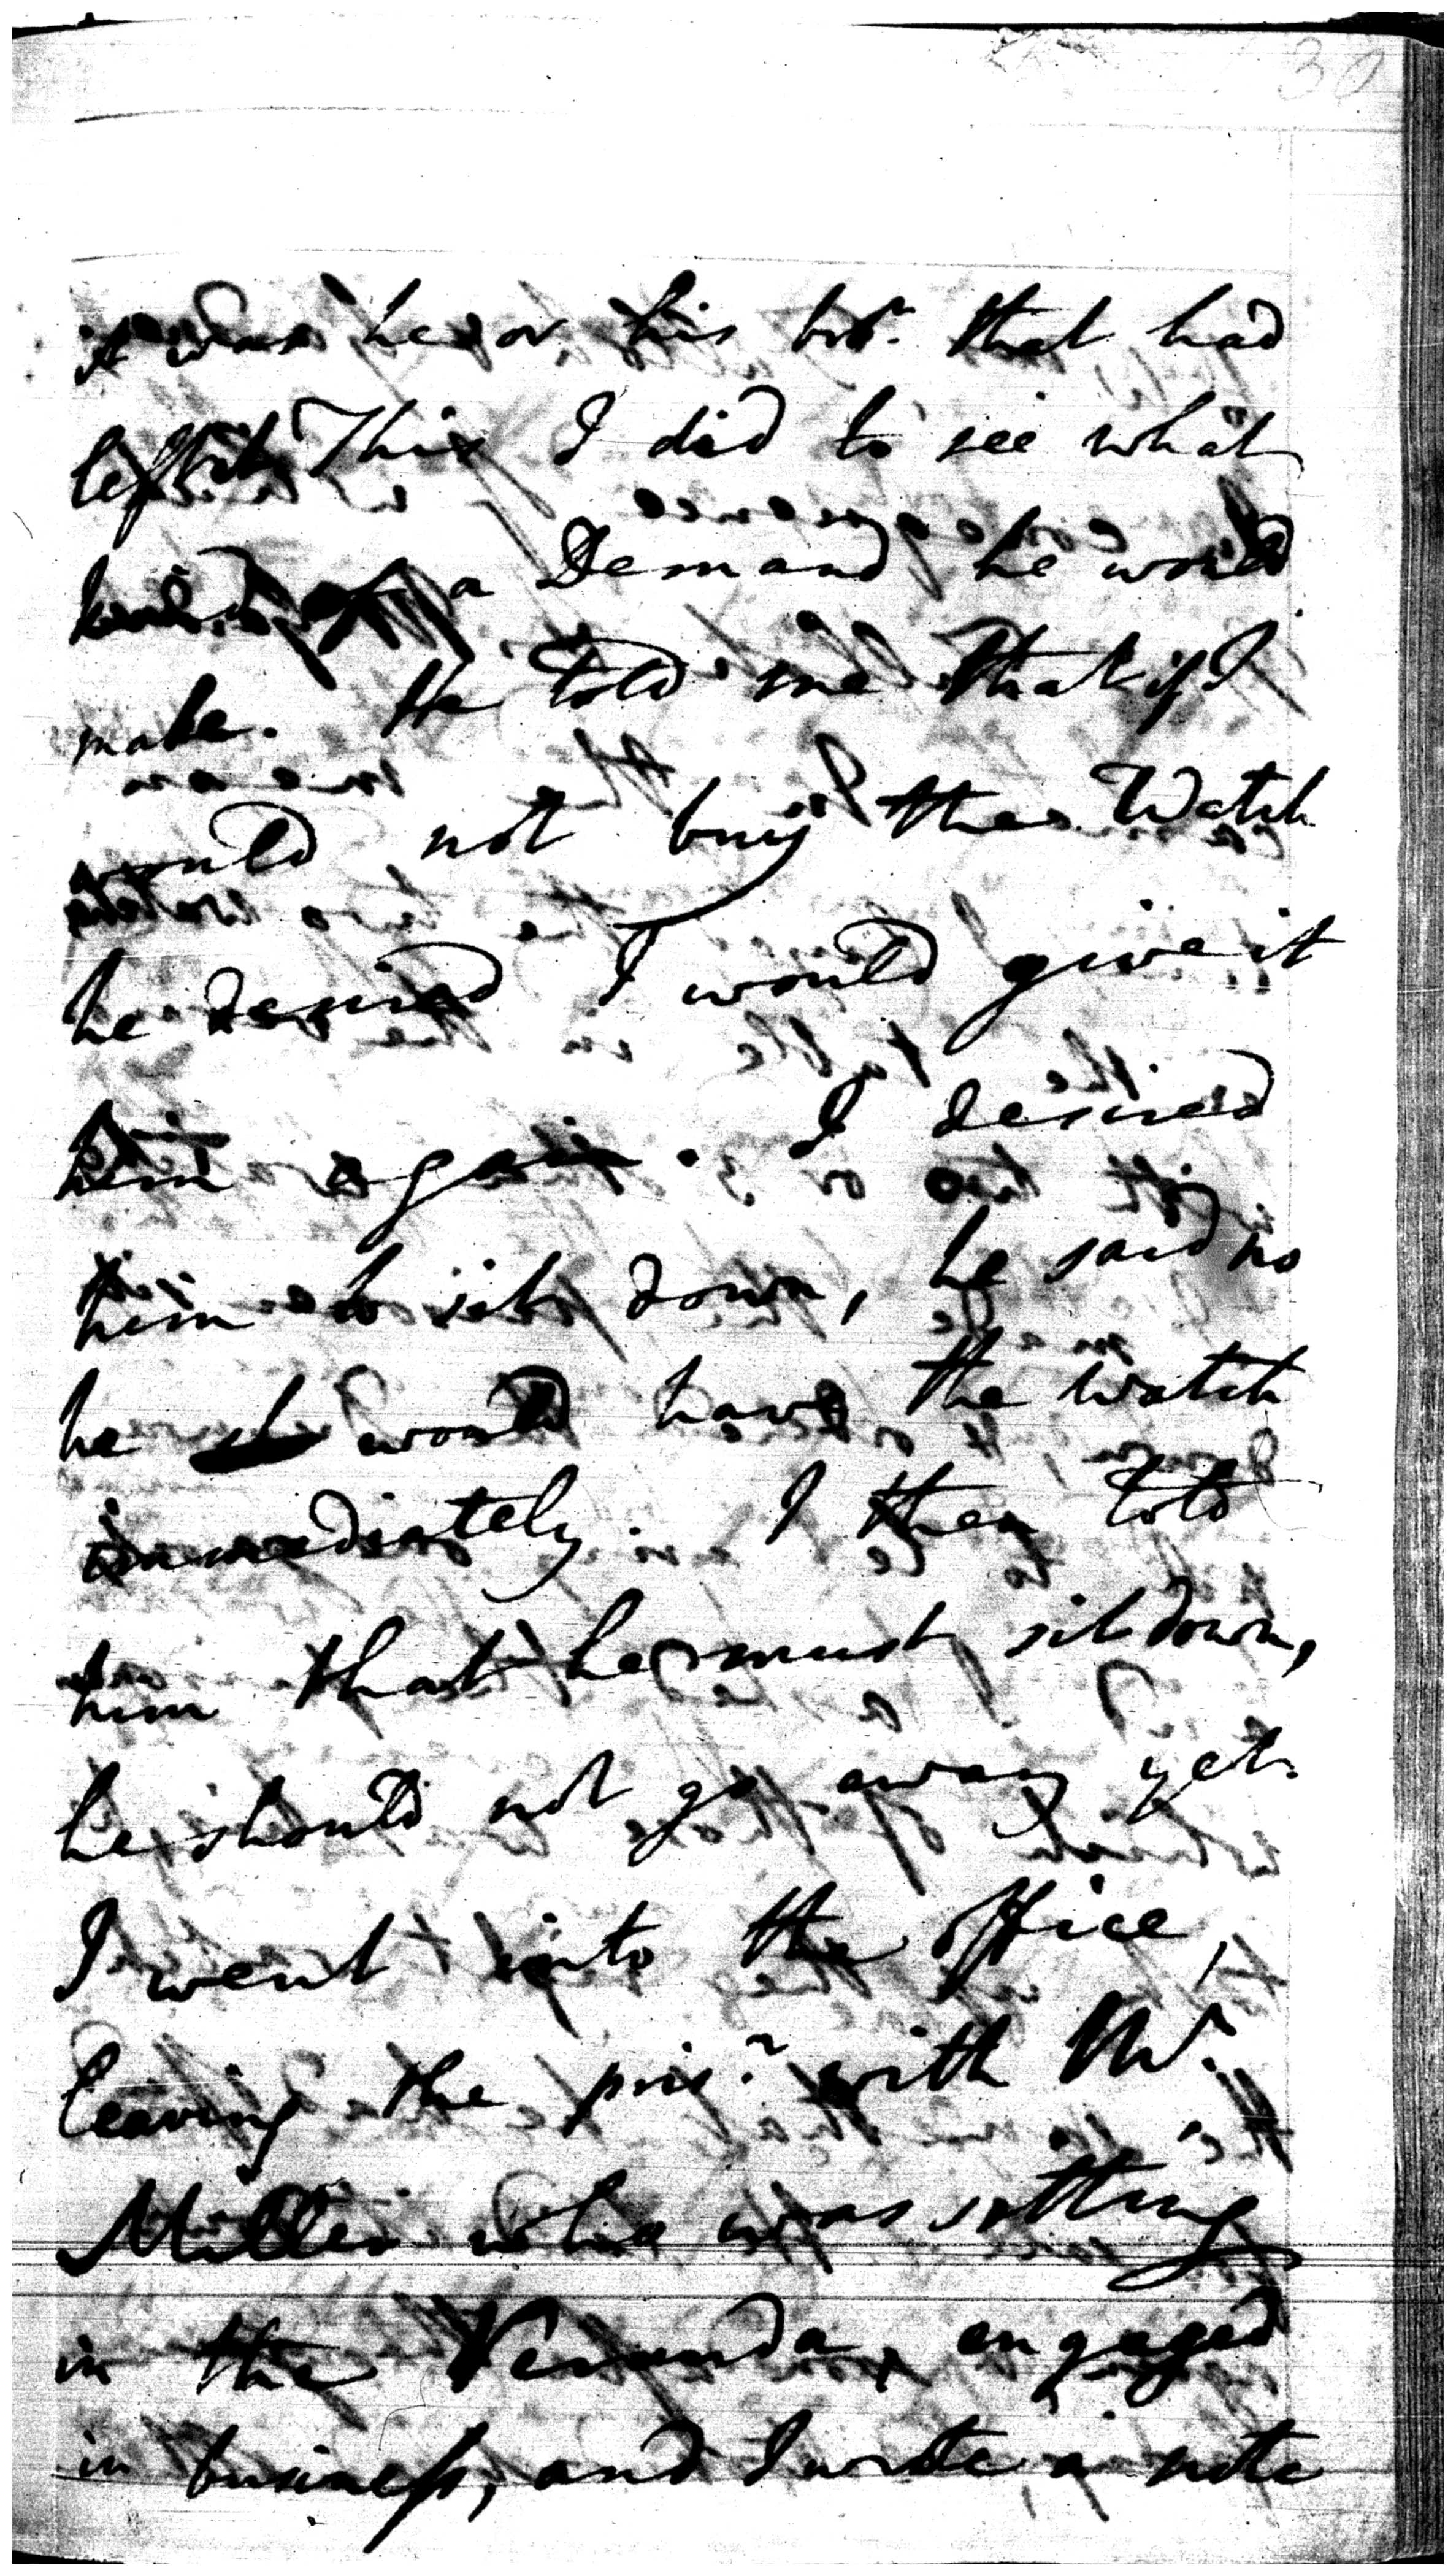 30
it was he or his bror. that had
left it. This I did to see what
kind of a Demand he would
make. He told me that if I
would not buy the Watch
he desired I would give it
him again. I desired
him to sit down, he said no
he would have the Watch
immediately. I then told
him that he must sit down,
he should not go away yet.
I went into the office,
leaving the prisr. with Mr.
Miller who was sitting
in the Veranda, engaged
in business, and I wrote a note